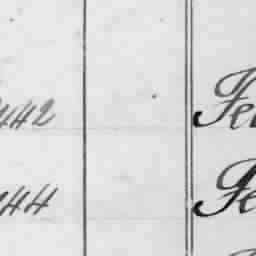 442 Fe
444 Fe